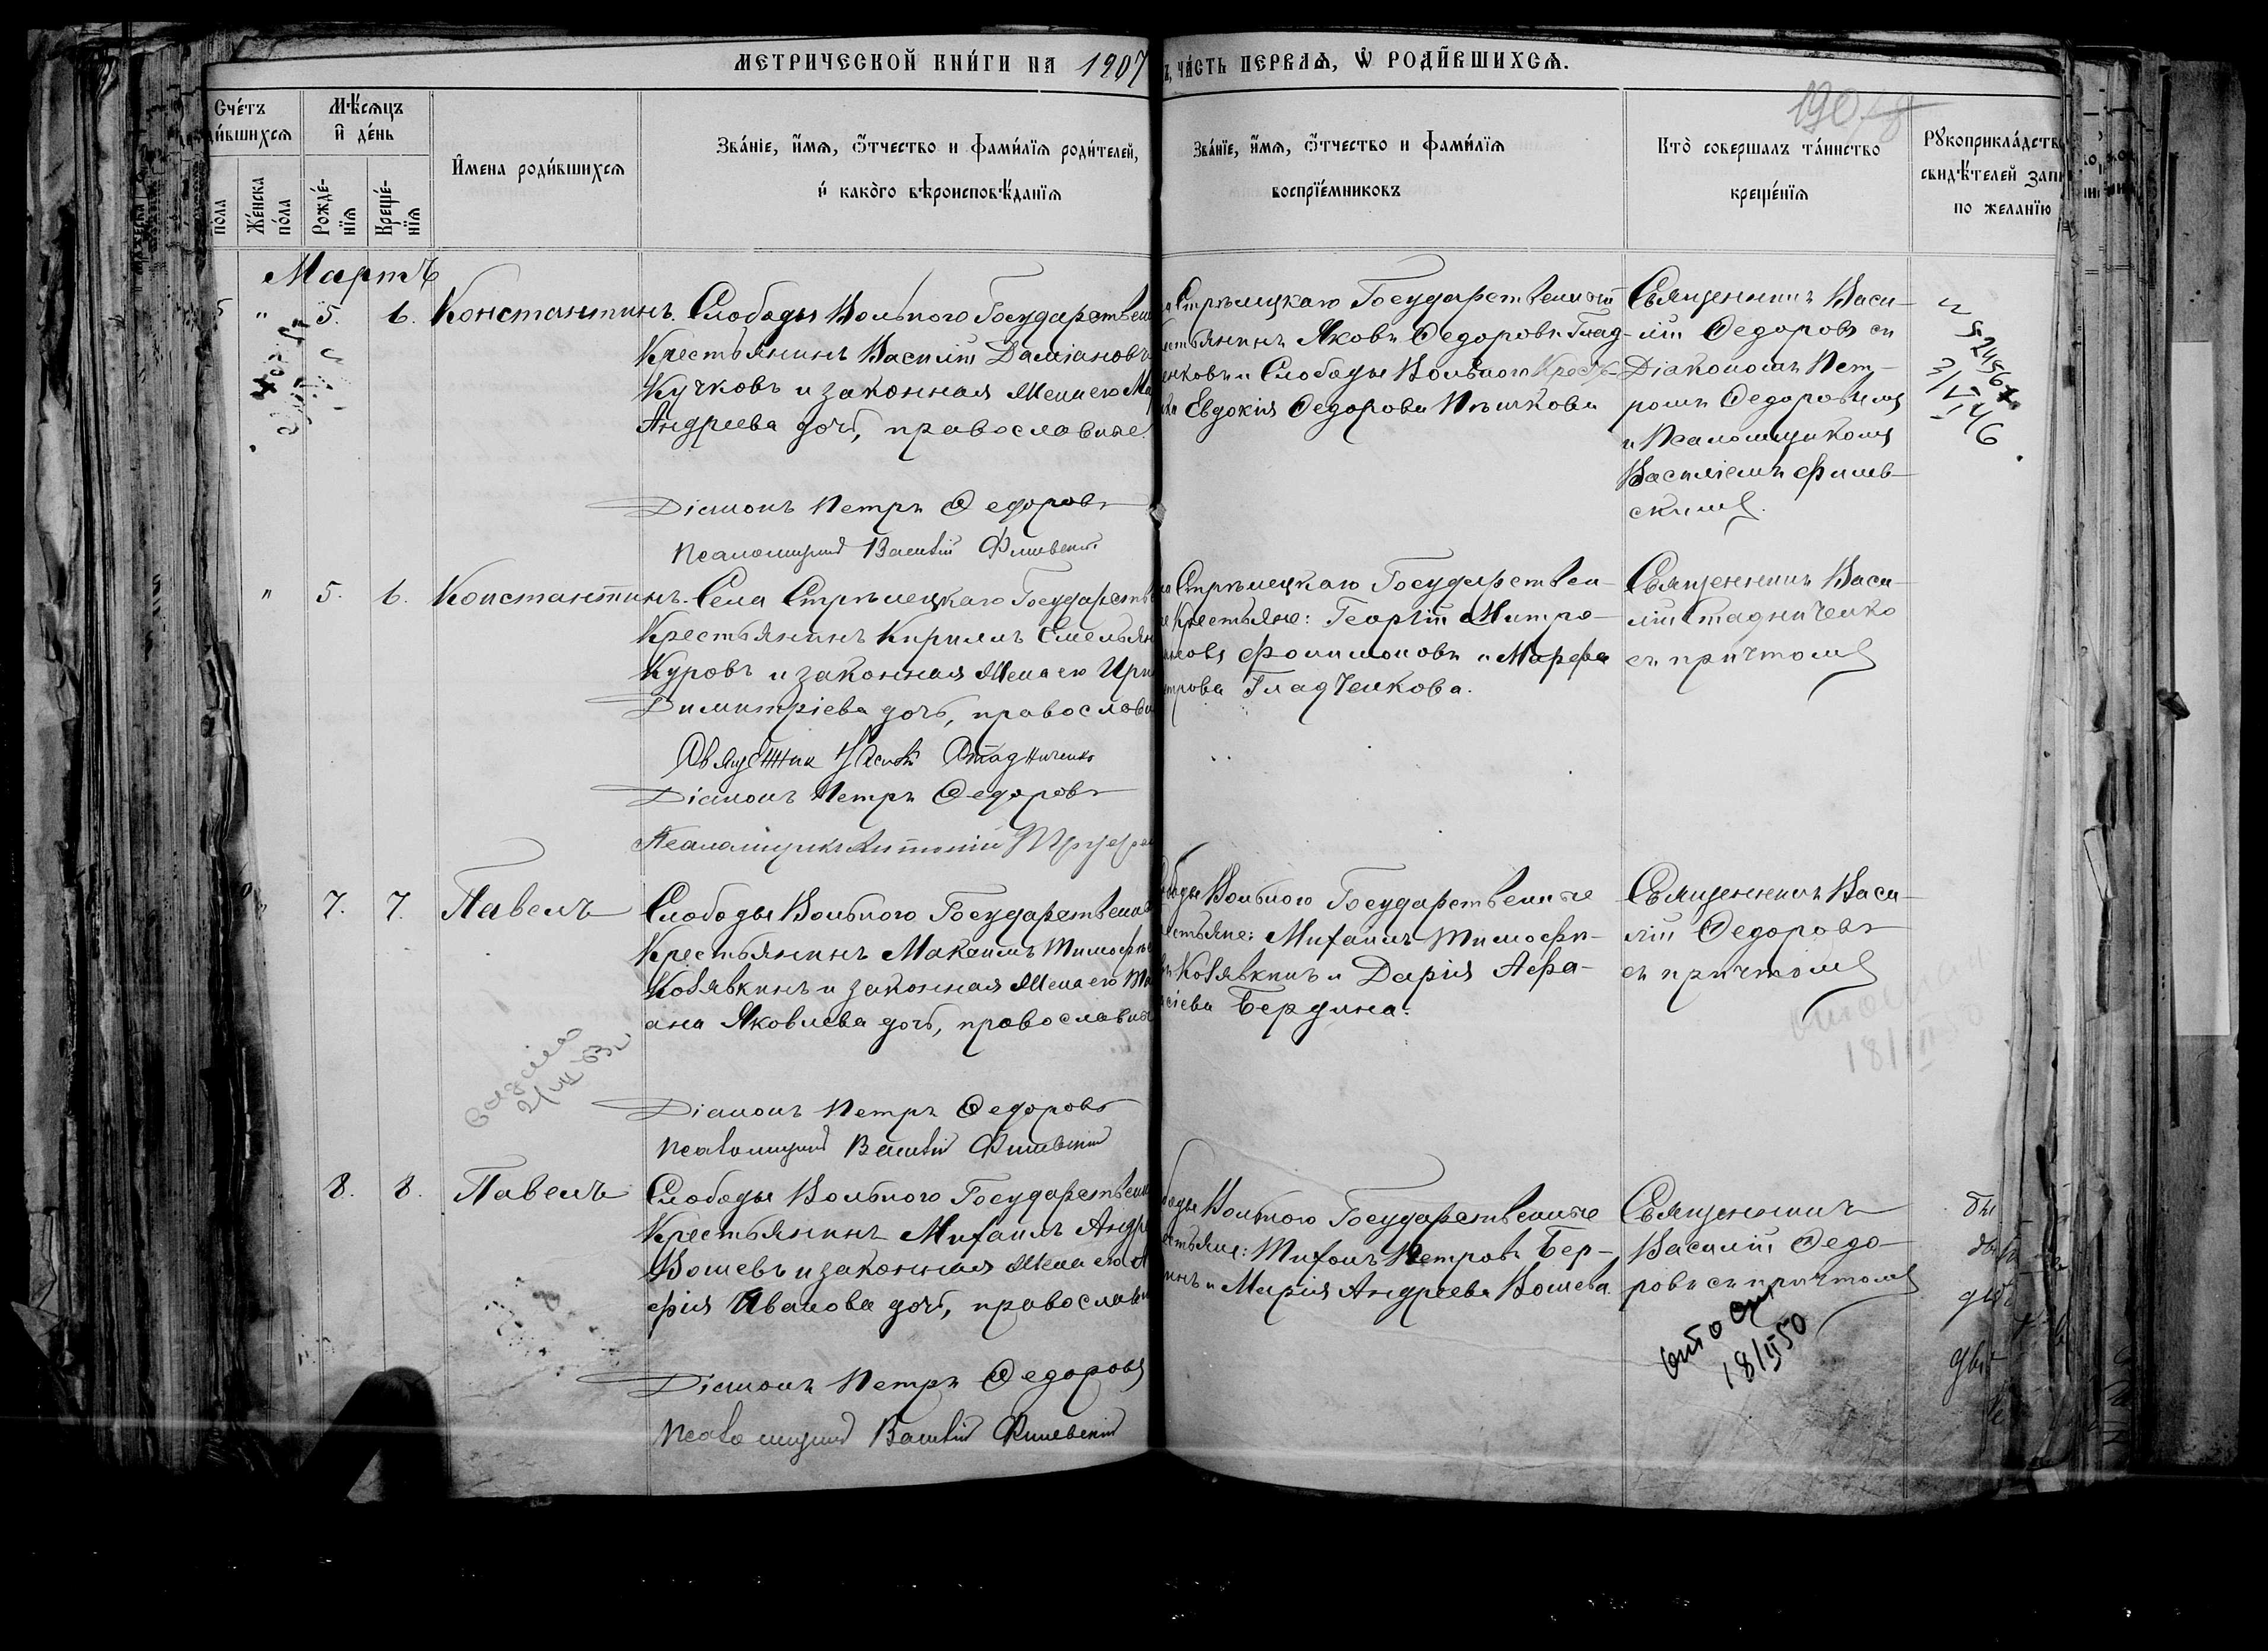 МЕТРИЧЕСКОЙ КНИ́ГИ НА 1907
Ъ, ЧА́СТЬ ПЕРВАѦ, Ѿ РОДИ́ВШИХСѦ.
190/8
Сче́тъ
ди́вшихсѧ
пола
Же́нска
по́ла
Мѣ́сѧцъ
и҆ де́нь
Рожде́-
нїѧ
Креще́-
нїѧ
И҆мена роди́вшихсѧ
Зва́нїе, и҆́мѧ, ѻ҆́тчество и фами́лїѧ роди́телей,
и҆ како́го вѣроисповѣ́данїѧ
Зва́нїе, и҆́мѧ, ѻ҆́тчество и фами́лїѧ
воспрїе́мниковъ
Кто̀ совершалъ та́инство
креще́нїѧ
Рꙋкоприкла́дство
свидѣ́телей запи
по желанїю
Мартъ
5 " 5. 6. Константинъ.
Слободы Вольного Государствен
Крестьянинъ Василій Даміановъ
Кучковъ и законная жена его Ма
Андреева дочь, православные.
Діаконъ Петръ Ѳедоровъ
Псаломщикъ Василій
Стрѣлецкаго Государственный
стьянинъ Яковъ Ѳедоровъ Глад-
енковъ и Слободы Вольного Крест-
ка Евдокія Ѳедорова
Священникъ Васи-
лій Ѳедоровъ съ
Діакономъ Пет-
ромъ Ѳедоровымъ
и Псаломщикомъ
Василіемъ
скимъ.
" 5. 6. Константинъ.
Села Стрѣлецкаго Государств
Крестьянинъ Кириллъ Емельян
Куровъ и законная жена его Ири
Димитріева дочь, православн
Священник Василій Стадниченко
Діаконъ Петръ Ѳедоровъ
Псаломщикъ Антоній
Стрѣлецкаго Государствен-
е Крестьяне: Георгій Митро-
Филимоновъ и Марфа
трова Гладченкова.
Священникъ Васи-
лій Стадниченко
съ причтомъ
7. 7. Павелъ
Слободы Вольного Государственн
Крестьянинъ Максимъ Тимофѣе
Козявкинъ и законная жена его Та
ана Яковлева дочь, православны
Діаконъ Петръ Ѳедоровъ
Псаломщикъ Василій
ободы Вольного Государственные
естьяне: Михаилъ Тимофѣ-
въ Козявкинъ и Дарія Аѳа-
сіева Бердина.
Священникъ Васи-
лій Ѳедоровъ
съ причтомъ
18/II 50
8. 8. Павелъ
Слободы Вольного Государственн
Крестьянинъ Михаилъ Андре
Вошевъ и законная жена его
фія Иванова дочь, православн
Діаконъ Петръ Ѳедоровъ
Псаломщикъ Василій
боды Вольного Государственные
естьяне: Тихонъ Петровъ Бер-
инъ и Марія Андреева Вошева.
Священникъ
Василій Ѳедо-
ровъ съ причтомъ
18/II 50